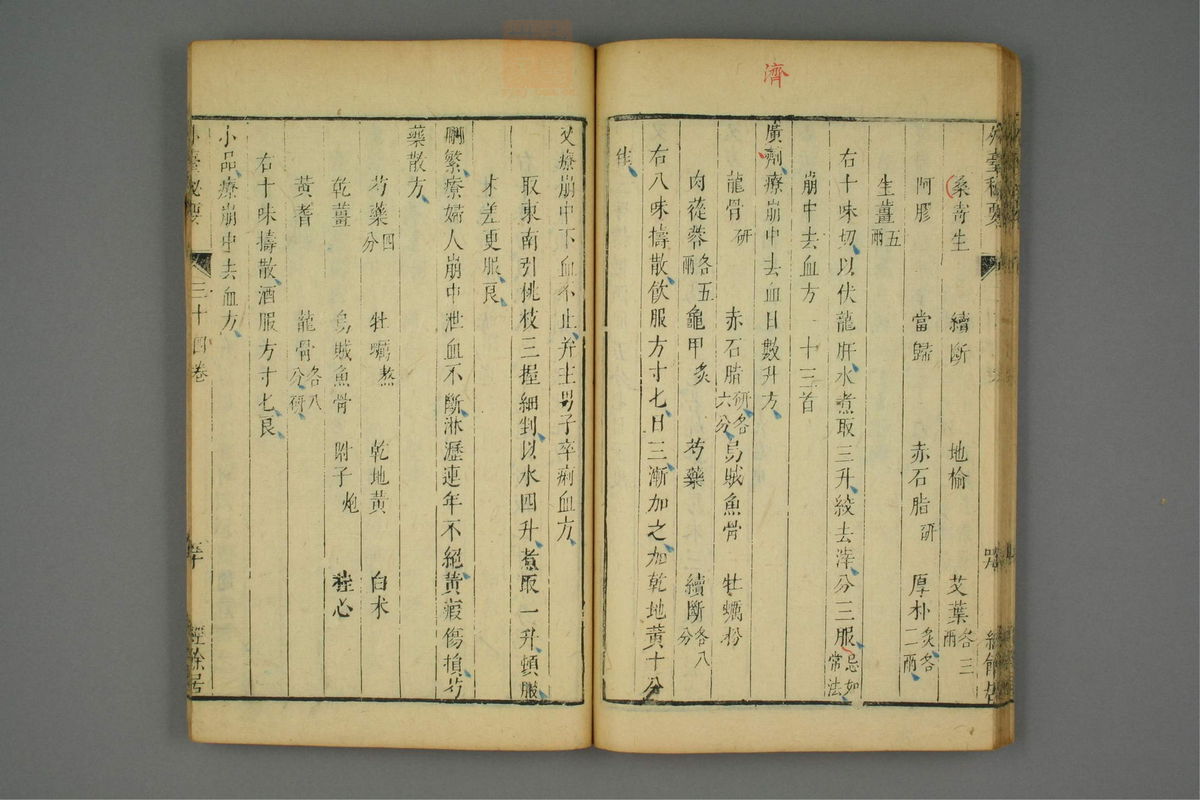 濟
外臺秘要
桑寄生 續斷 地榆 艾葉各三兩
阿膠 當歸 赤石脂研 厚朴炙各二兩
生薑五兩
右十味切以伏龍肝水煮取三升絞去滓分三服忌如常法
崩中去血方一十三首
廣劑療崩中去血日數升方
龍骨研 赤石脂研各六分 烏賊魚骨 牡蠣粉
肉蓯蓉各五兩 龜甲炙 芍藥 續斷各八分
右八味擣散飲服方寸七日三漸加之加乾地黃十分
佳
又療崩中下血不止并主男子卒痢血方
取東南引桃枝三握細剉以水四升煮取一升頓服
未差更服良
刪繁療婦人崩中泄血不斷淋瀝連年不絕黃瘦傷損芍
藥散方
芍藥四分 牡蠣熬 乾地黃 白朮
乾薑 烏賊魚骨 附子炮 桂心
黃耆 龍骨各八分研
右十味擣散酒服方寸七良
小品療崩中去血方
外臺秘要 三十四卷 五十 經餘居